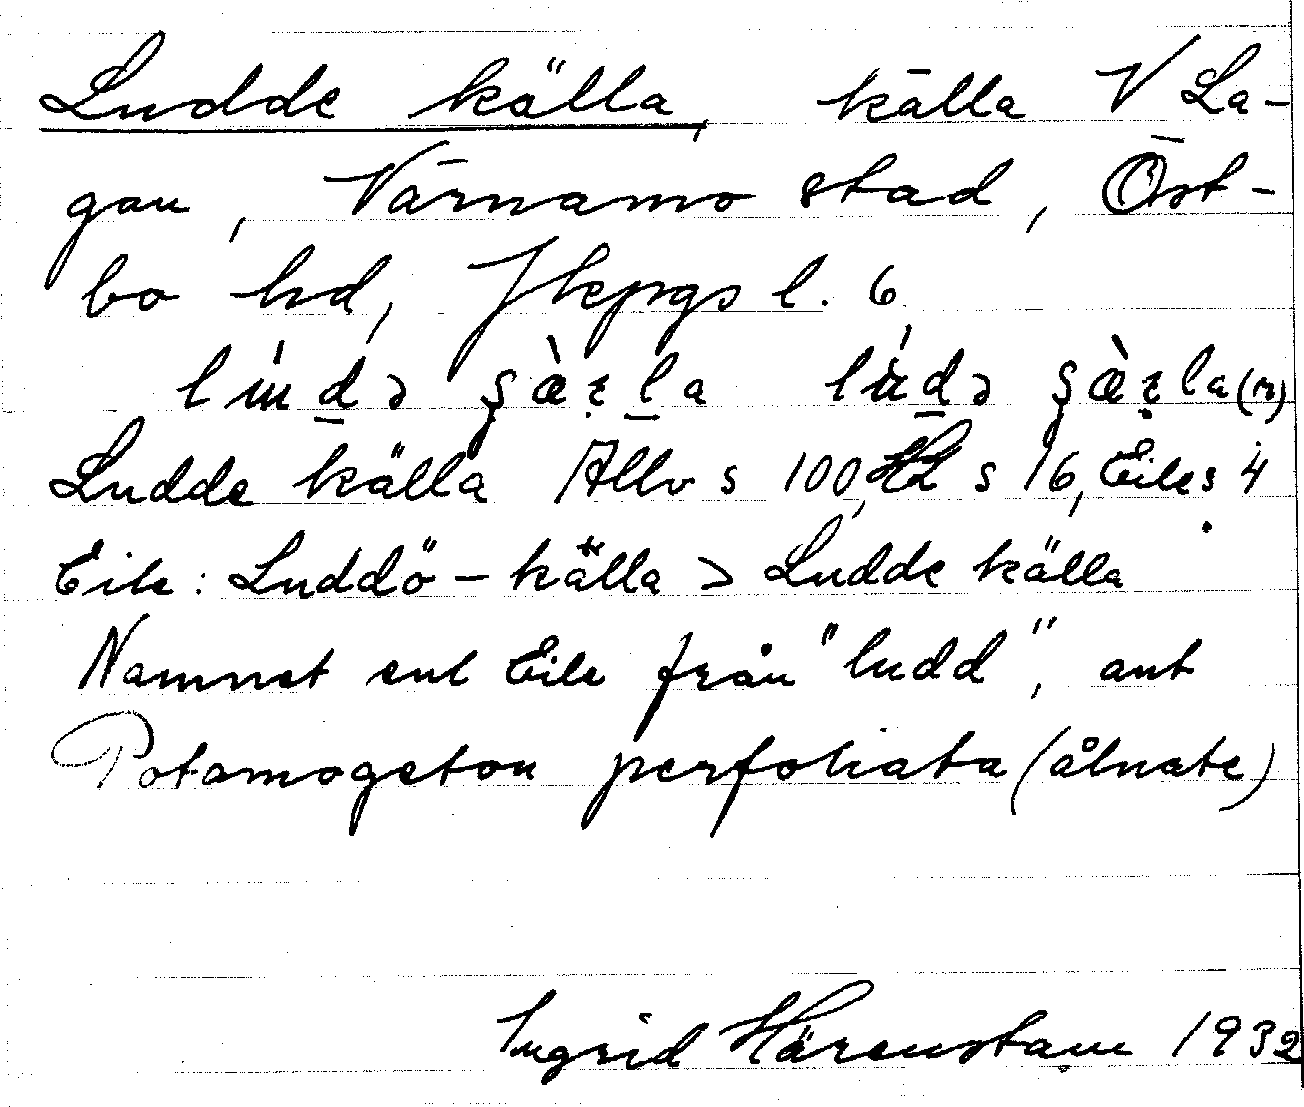 Ludde källa, källa V La-
gan, Värnamo stad, Öst-
bo hd, Jkpgs l. 6
Ludde källa Allv s 100, HL s 16, Eile s 4
Eile: Luddö-källa > Ludde källa
Namnet enl Eile från "ludd", ant
Potamogeton perfoliata (ålnate)
Ingrid Härenstam 1932